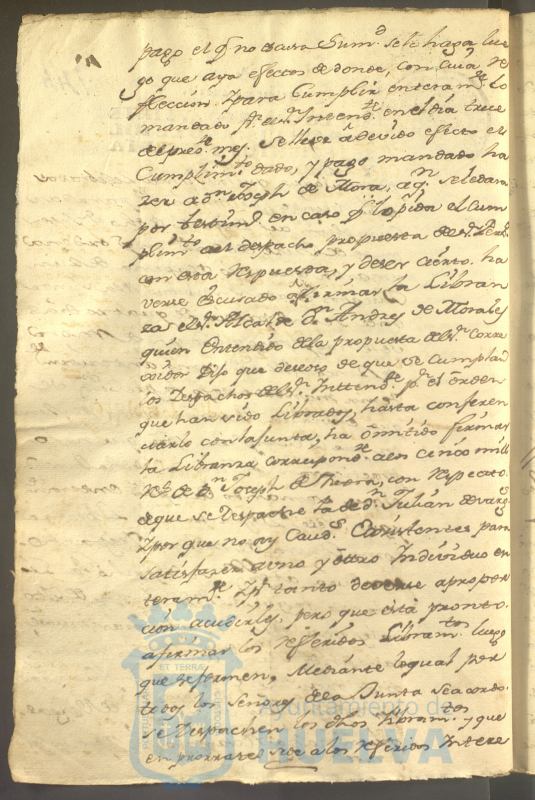 pago el qe. no dara Sumd. sele haga lue
go que aya efectos de donde, con cuia re
fleccion, y para Cumplir enteramte. lo
mandado pr. el Sr. Intendte. en el dia trece
del preste. mes. Se lleve a devido efecto el
Cumplimto. dado, y pago mandado ha
zer a Dn. Joseph de Mora, a qn. se le dara
por testimo. en caso qe. lo pida el Cum
plimto. del despacho propuesta del Sr.
con esta Respuesta, y deser cierto ha
verse Escusado a firmar la Libran
za el Sr. Alcalde Dn. Andres de Morales
quien Entendido dela propuesta del Sr. Corre
xidor Dijo que deseoso de que se Cumplan
los Despachos del Sr. Inttendte. pr. el orden
que han sido Librados, hasta conferen
ciarlo con la Junta, ha omitido firmar
la Libranza correspondte. a los cinco mill
Rs. de Dn. Joseph de Mora, con Respecto
a que se Despache la de dn. Julian de
y por que no ay Caudes. Existentes para
satisfazer a uno y otro Individuo en
teramte. y pr. tanto deverse a propor
cion acudirles, pero que está prompto
a firmar los referidos Libramtos. luego
que se formen, Mediante lo qual por
todos los señores dela Junta se acordo
se Despachen los dhos Libramtos. y que
en prorrateo se de a los referidos Intere
ET TERRÆ
Ayuntamiento de
HUELVA